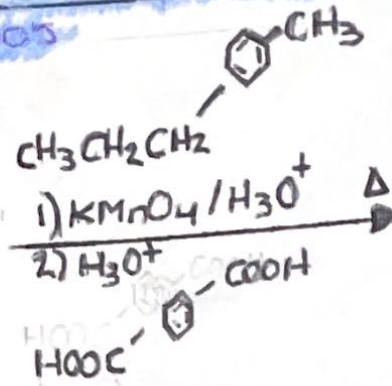 CH₃
CH₃CH₂CH₂
1) KMnO₄ / H₃O⁺ Δ
2) H₃O⁺
COOH
HOOC